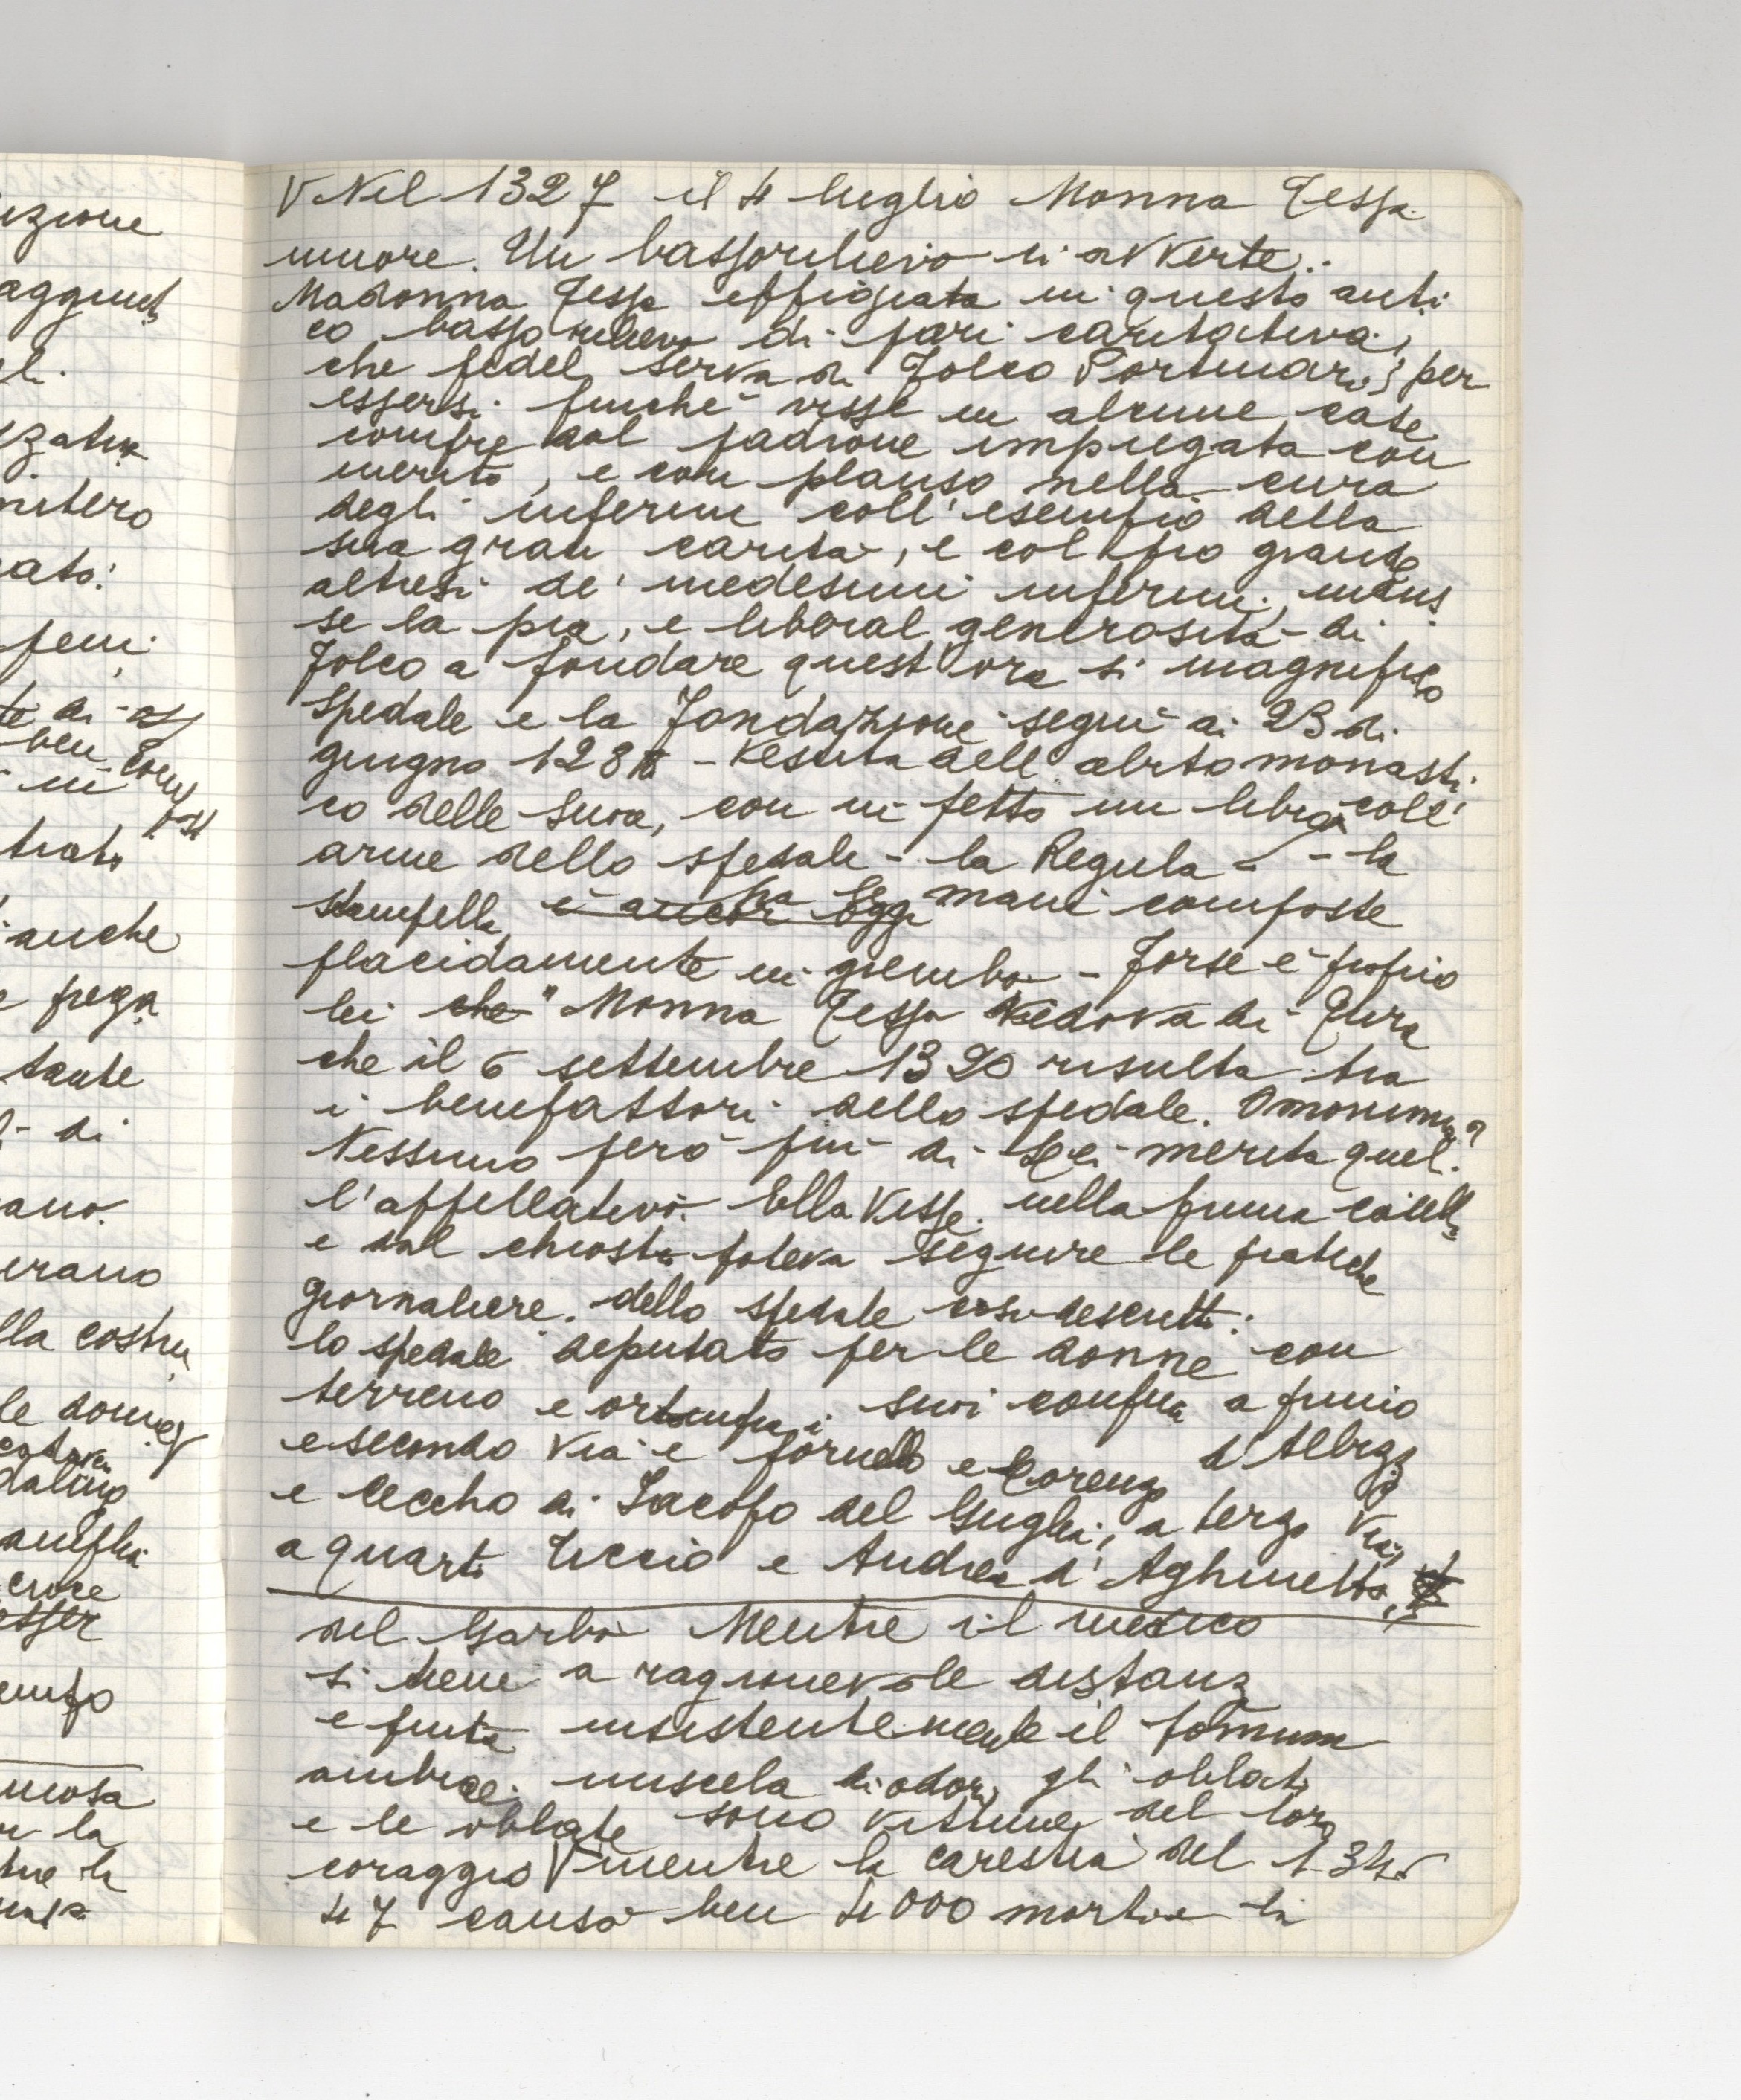 izione
V Nel 1327 il 4 luglio Monna Tessa
muore. Un bassorilievo ci avverte:
Madonna Tessa effigiata in questo anti
co basso rilievo di pari caritativa,
che fedel serva di Folco Portinari, per
essersi finchè visse in alcune case
compre dal padrone impiegata con
merito, e con plauso nella cura
degli infermi coll'esempio della
sua gran carità, e col pro grande
altresì de' medesimi infermi, mos
se la pia, e liberal generosità di
Folco a fondare quest'ora sì magnifico
spedale e la fondazione seguì ai 23 di
giugno 128 - Vestita dell'abito monasti
co delle suore, con in petto un libro coll'
arme dello spedale - la Regula - - la
stampella è ancor oggi ha le mani composte
placidamente in grembo - Forse è proprio
lei che "Monna Tessa vedova di Tura
che il 6 settembre 1320 risulta tra
i benefattori dello spedale. Omonima?
Nessuno però più di lei merita quel
l'appellativo. Ella visse nella prima
e dal chiostro poteva seguire le pratiche
giornaliere dello spedale così descritto:
lo spedale deputato per le donne con
terreno e orto infra i suoi confini a primo
e secondo via e fornello e Lorenzo d'Albizzo
e Ceccho di Jacopo del Guglia, a terzo via,
a quarto Tuccio e Andrea d'Aghinetto,
del Garbo Mentre il medico
si tiene a ragionevole distanza
e fiuta insistentemente il pomum
ambrae miscela di odori, gli oblati
e le oblate sono vittime del loro
coraggio V mentre la carestia del 1346
47 causò ben 4000 morti e la
anche
e prega
tante
di
ano.
erano
lla costru
le donne
croce
esser
empo